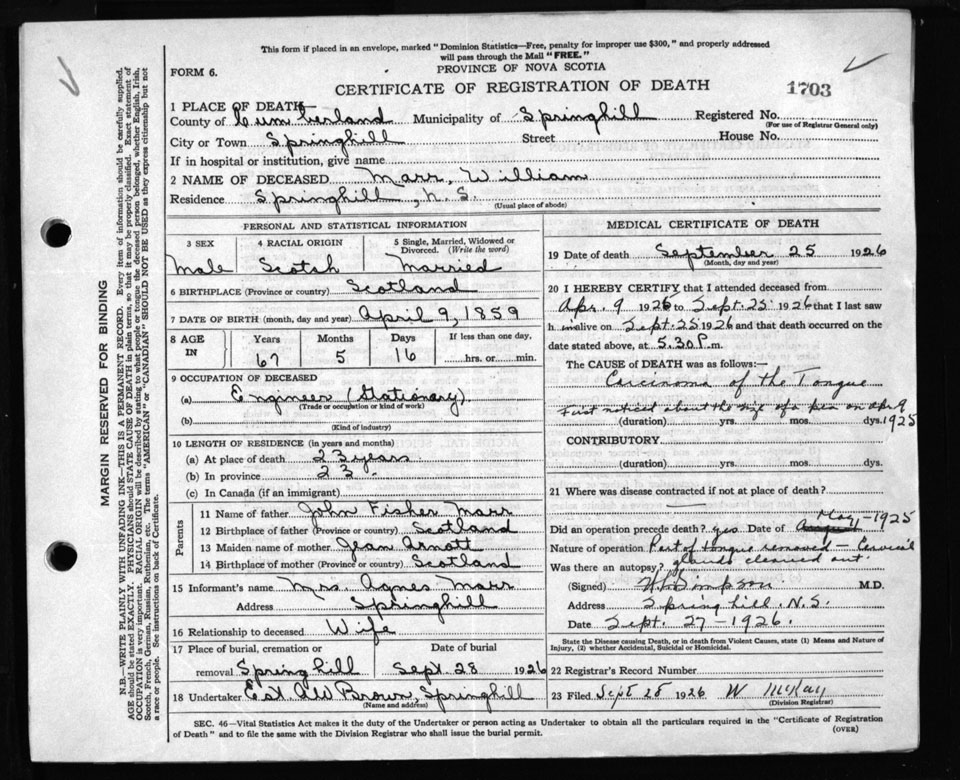 This form if placed in an envelope, marked "Dominion Statistics—Free, penalty for improper use $300," and properly addressed
will pass through the Mail "FREE."
PROVINCE OF NOVA SCOTIA
FORM 6.
CERTIFICATE OF REGISTRATION OF DEATH
1703
MARGIN RESERVED FOR BINDING
N.B.—WRITE PLAINLY WITH UNFADING INK—THIS IS A PERMANENT RECORD. Every item of information should be carefully supplied.
AGE should be stated EXACTLY. PHYSICIANS should STATE CAUSE OF DEATH in plain terms, so that it may be properly classified. Exact statement of
OCCUPATION is very important. RACIAL ORIGIN will be described by stating to what people or tongue the deceased person belonged, whether English, Irish,
Scotch, French, German, Russian, Ruthenian, etc. The terms "AMERICAN" or "CANADIAN" SHOULD NOT BE USED as they express citizenship but not
a race or people. See instructions on back of Certificate.
1 PLACE OF DEATH
County of Cumberland Municipality of Springhill Registered No.
(For use of Registrar General only)
City or Town Springhill Street House No.
If in hospital or institution, give name
2 NAME OF DECEASED Marr, William
Residence Springhill, N.S.
(Usual place of abode)
PERSONAL AND STATISTICAL INFORMATION
3 SEX 4 RACIAL ORIGIN 5 Single, Married, Widowed or
Divorced. (Write the word)
Male Scotch Married
6 BIRTHPLACE (Province or country) Scotland
7 DATE OF BIRTH (month, day and year) April 9, 1859
8 AGE IN Years Months Days If less than one day,
67 5 16 hrs. or min.
9 OCCUPATION OF DECEASED
(a) Engineer (Stationary)
(Trade or occupation or kind of work)
(b)
(Kind of industry)
10 LENGTH OF RESIDENCE (in years and months)
(a) At place of death 23 years
(b) In province 23
(c) In Canada (if an immigrant)
Parents
11 Name of father John Fisher Marr
12 Birthplace of father (Province or country) Scotland
13 Maiden name of mother Jean Arnott
14 Birthplace of mother (Province or country) Scotland
15 Informant's name Mrs. Agnes Marr
Address Springhill
16 Relationship to deceased Wife
17 Place of burial, cremation or Date of burial
removal Springhill Sept 28 1926
18 Undertaker Est. A W Brown, Springhill
(Name and address)
MEDICAL CERTIFICATE OF DEATH
19 Date of death September 25 1926
(Month, day and year)
20 I HEREBY CERTIFY that I attended deceased from
Apr. 9 1925 to Sept. 25 1926 that I last saw
h im alive on Sept. 25 1926 and that death occurred on the
date stated above, at 5.30 P.m.
The CAUSE OF DEATH was as follows:
Carcinoma of the Tongue
First noticed about the size of a pea on Apr 9
(duration) yrs. mos. dys. 1925
CONTRIBUTORY
(duration) yrs. mos. dys.
21 Where was disease contracted if not at place of death?
May – 1925
Did an operation precede death? yes Date of
Nature of operation Part of tongue removed – Cervical
Was there an autopsy? glands cleaned out
(Signed) Simpson M.D.
Address Springhill, N.S.
Date Sept. 27 – 1926.
State the Disease causing Death, or in death from Violent Causes, state (1) Means and Nature of
Injury, (2) whether Accidental, Suicidal or Homicidal.
22 Registrar's Record Number
23 Filed Sept 28 1926 W McKay
(Division Registrar)
SEC. 46—Vital Statistics Act makes it the duty of the Undertaker or person acting as Undertaker to obtain all the particulars required in the "Certificate of Registration
of Death" and to file the same with the Division Registrar who shall issue the burial permit.
(OVER)